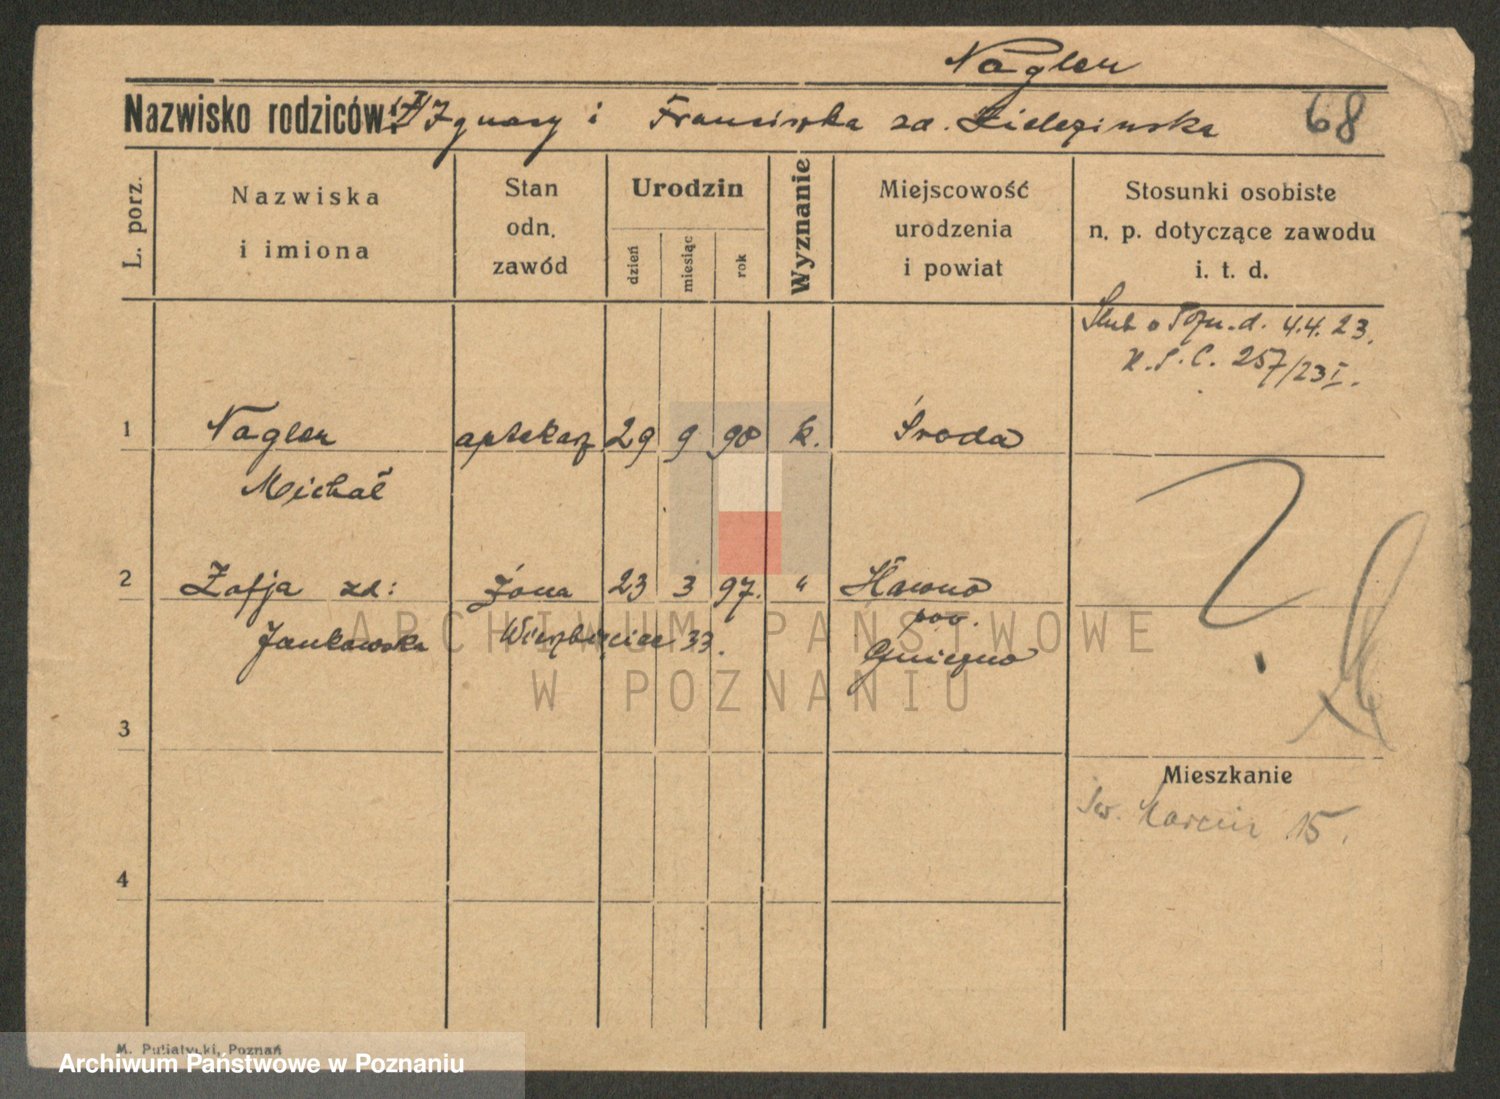 Nagler
Nazwisko rodziców: Ignacy i Franciszka zd. Zielezinska 68
L. porz.
Nazwiska
i imiona
Stan
odn.
zawód
Urodzin
dzień
miesiąc
rok
Wyznanie
Miejscowość
urodzenia
i powiat
Stosunki osobiste
n. p. dotyczące zawodu
i. t. d.
Ślub o Pozn. d. 4.4.23.
U.S.C. 257/23 I.
1 Nagler aptekarz 29 9 98 k. Środa
Michał
2 Zofja zd: żona 23 3 97. "
pow.
Jankowska Wierzbięcice 33. Gniezno
ARCHIWUM PAŃSTWOWE
W POZNANIU
3
Mieszkanie
Św. Marcin 15.
4
M. Putiatycki, Poznań
Archiwum Państwowe w Poznaniu